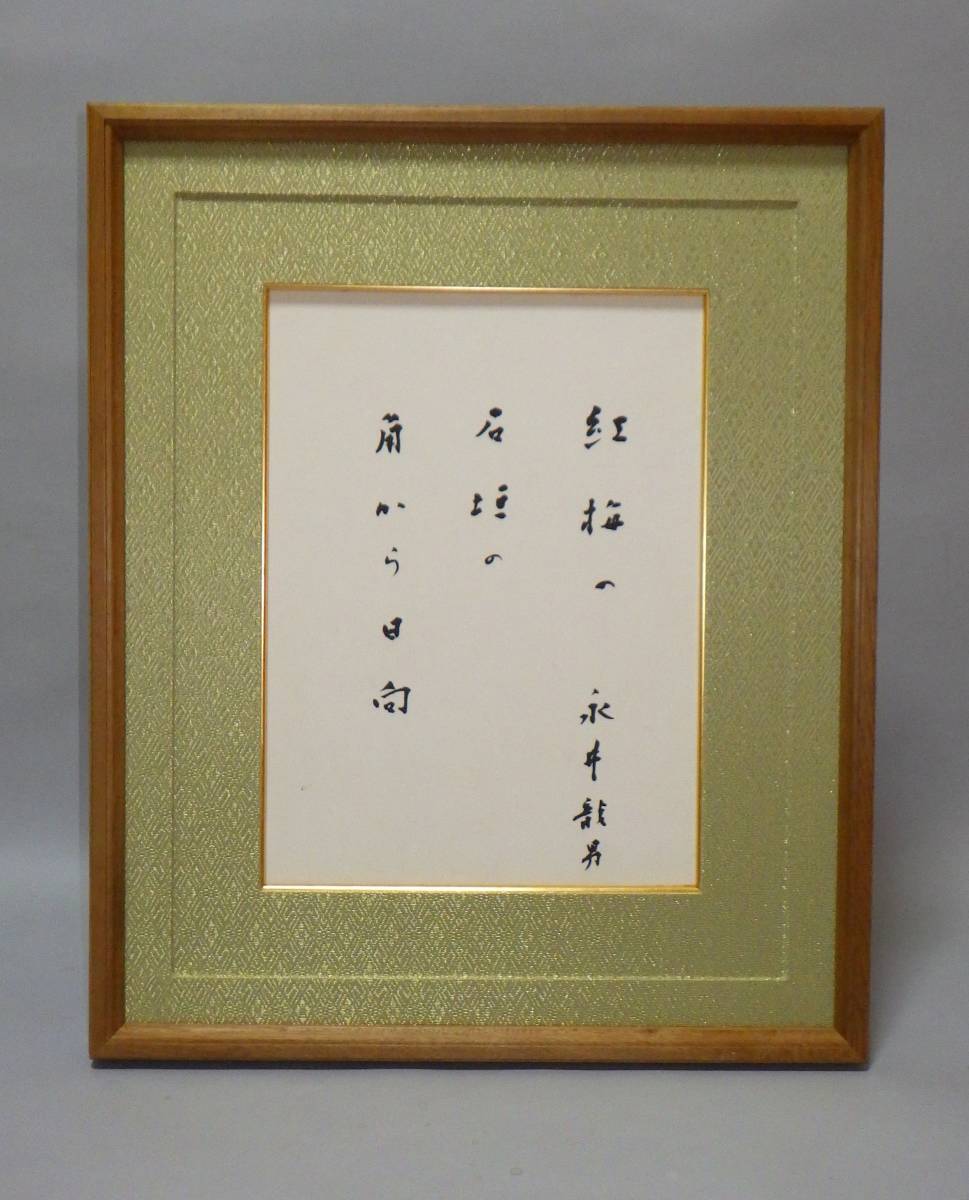 紅梅の
永井龍男
石垣の
角から日向